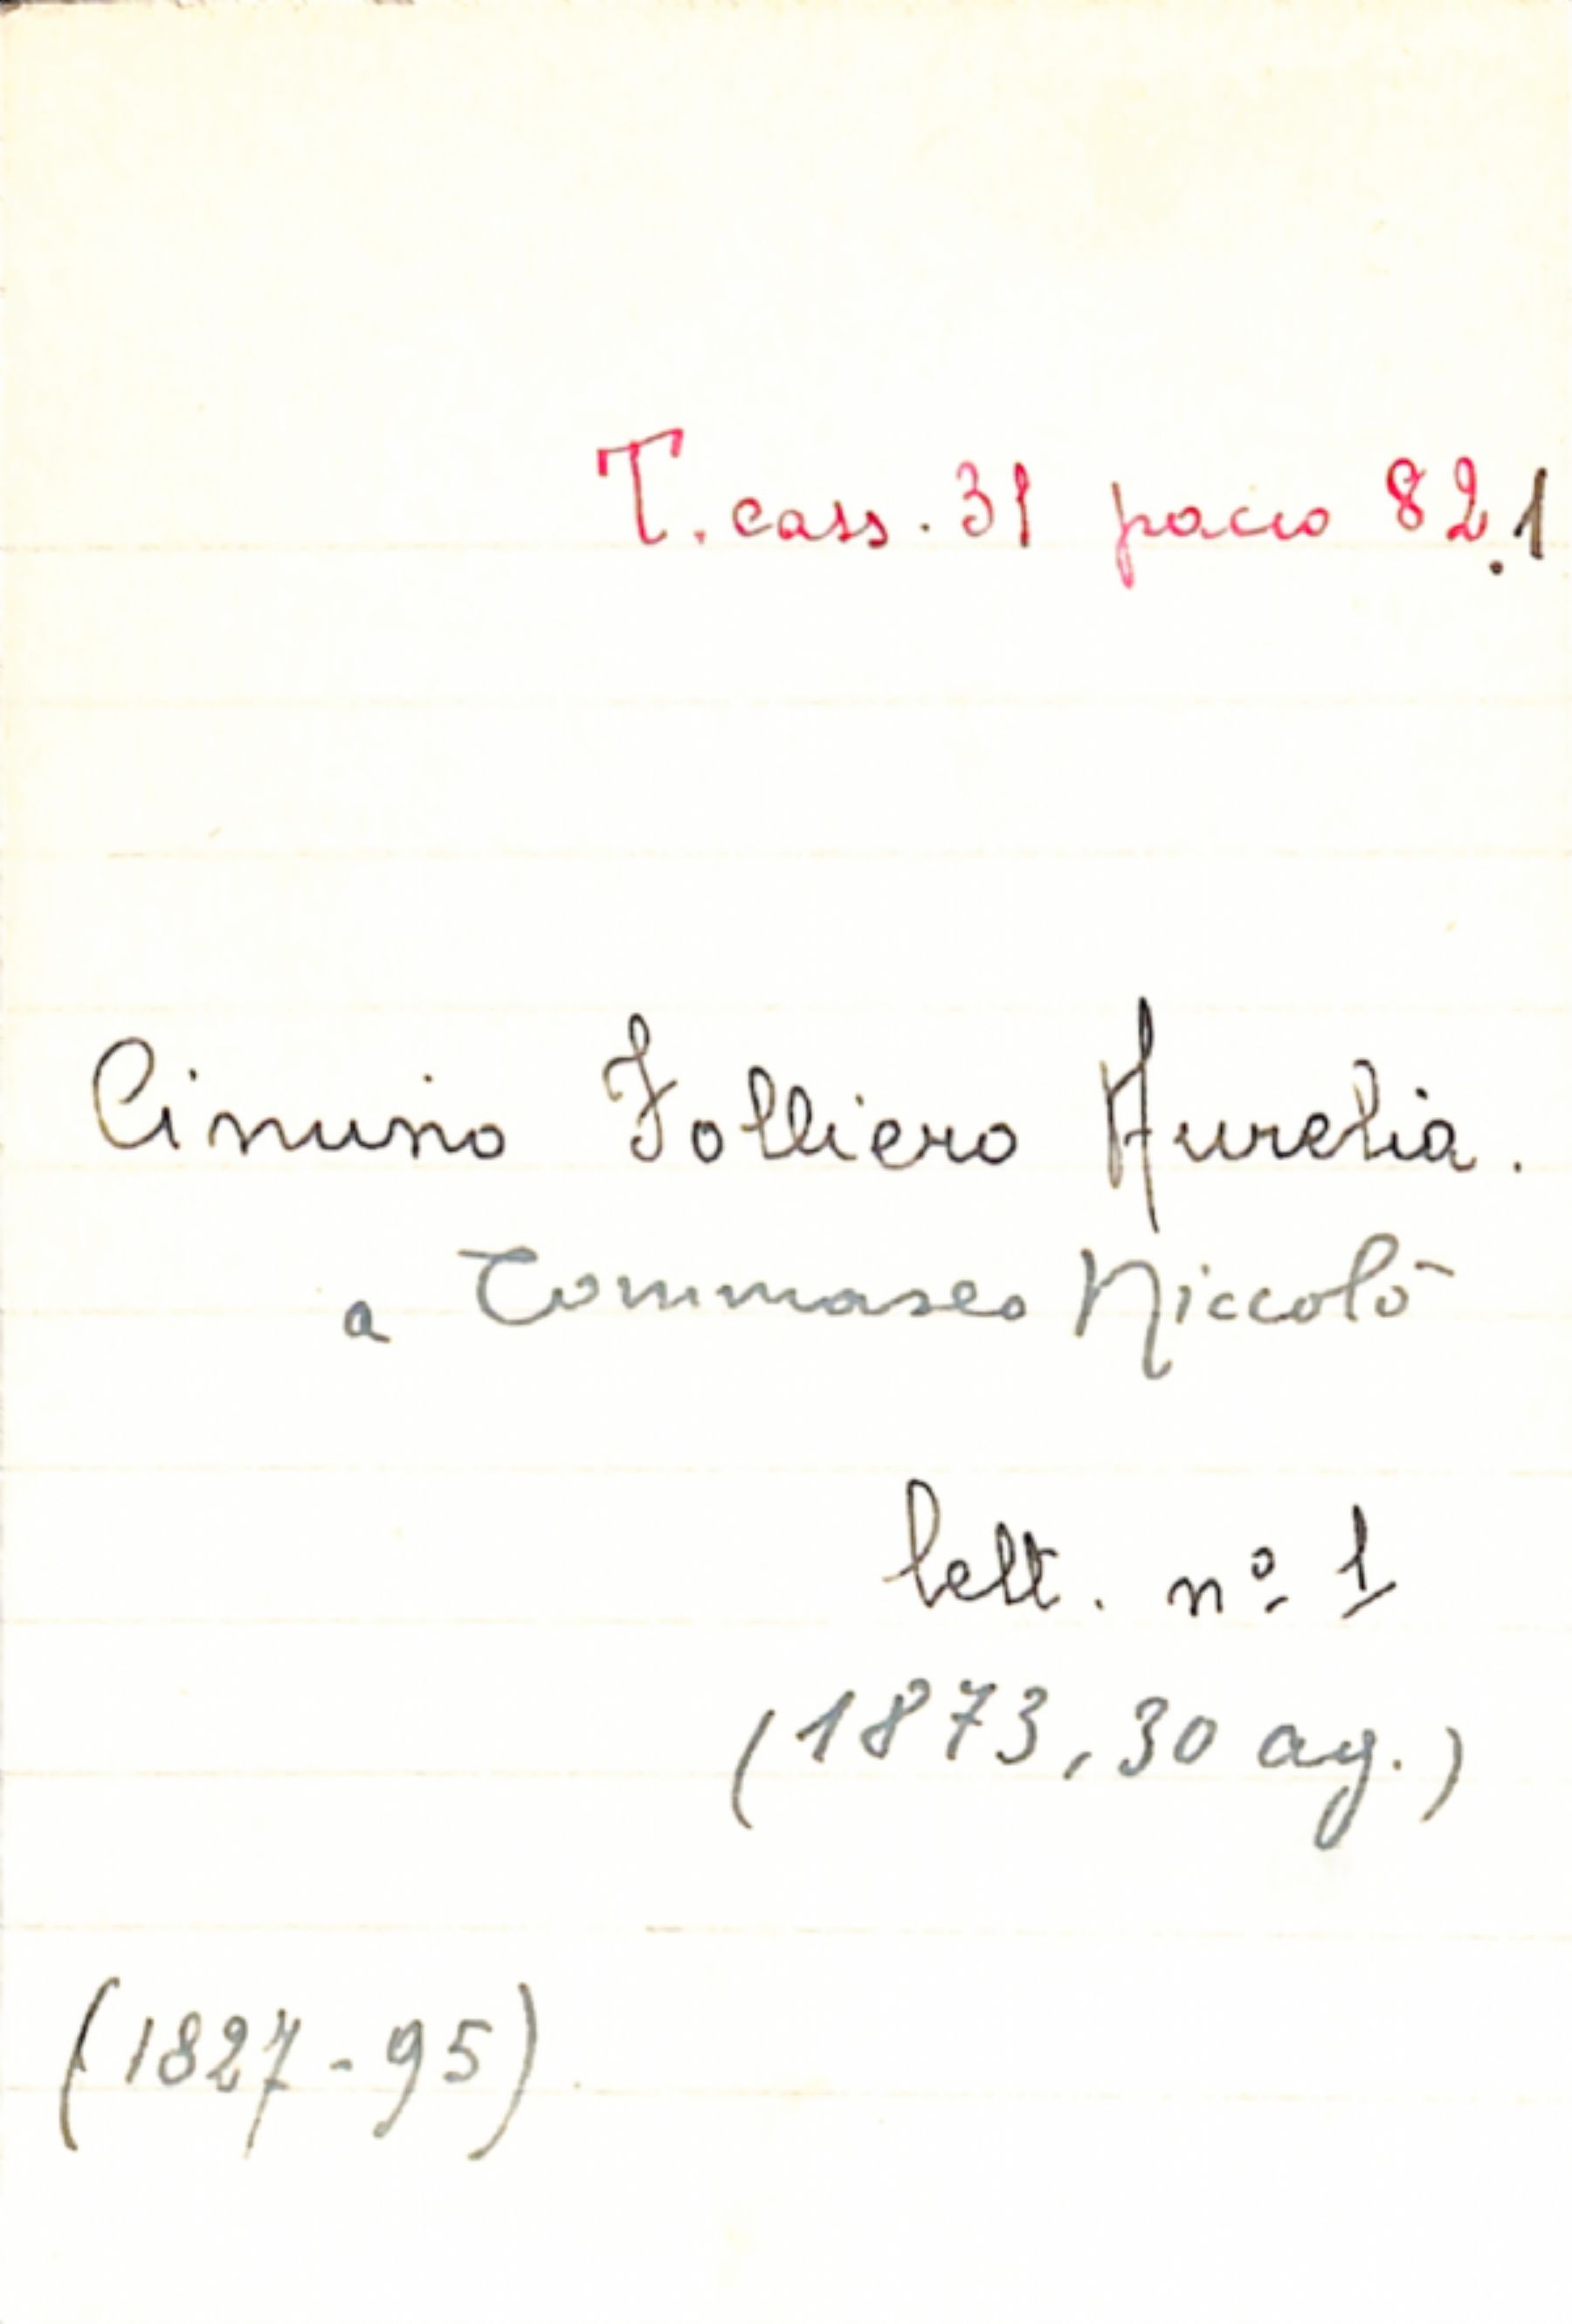 T. cass. 31 pacco 82.1
Cimino Folliero Aurelia.
a Tommaseo Niccolò
lett. nº 1
(1873, 30 ag.)
(1827-95)